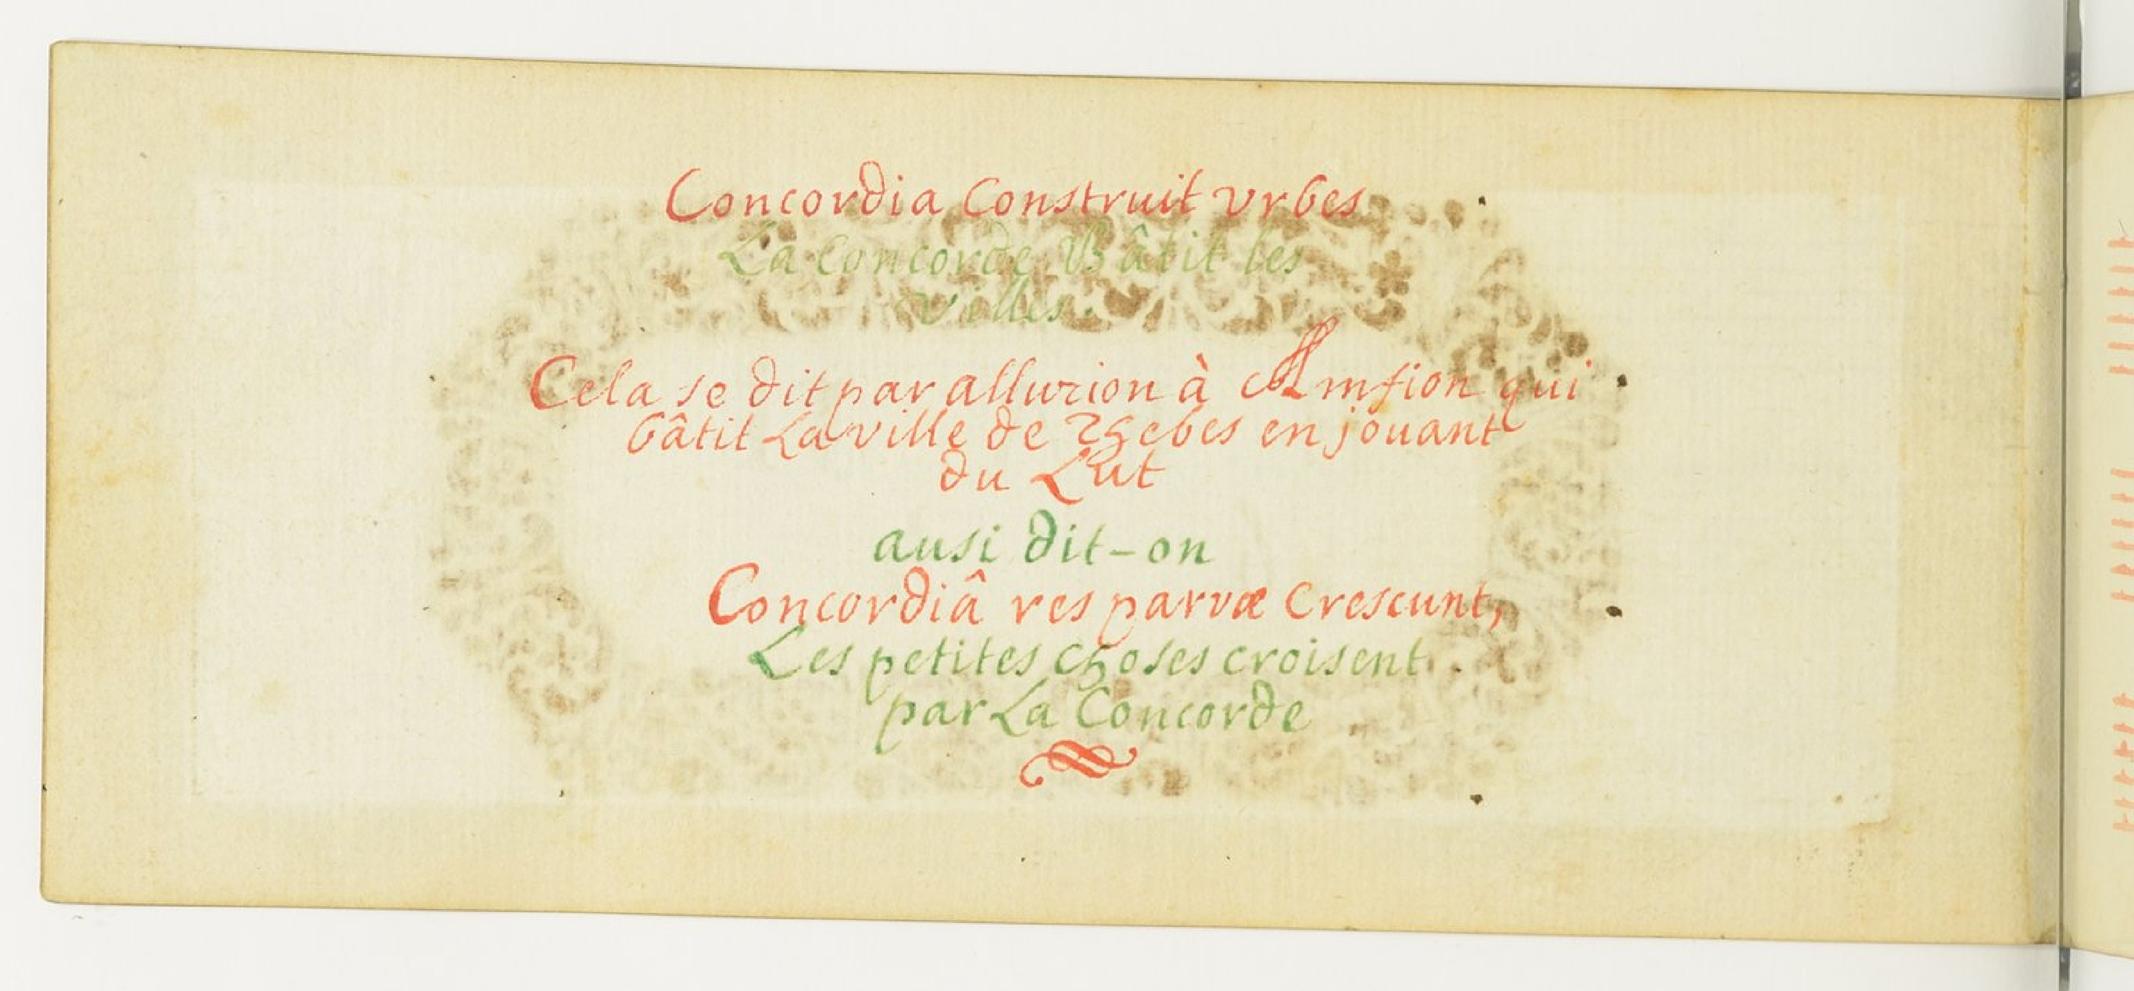 Concordia Construit Vrbes
La Concorde Bâtit les
villes.
Cela se dit par allusion à Amfion qui
bâtit La ville de Thebes en jouant
du Lut
ausi dit-on
Concordiâ res parvæ Crescunt,
Les petites choses croisent
par La Concorde